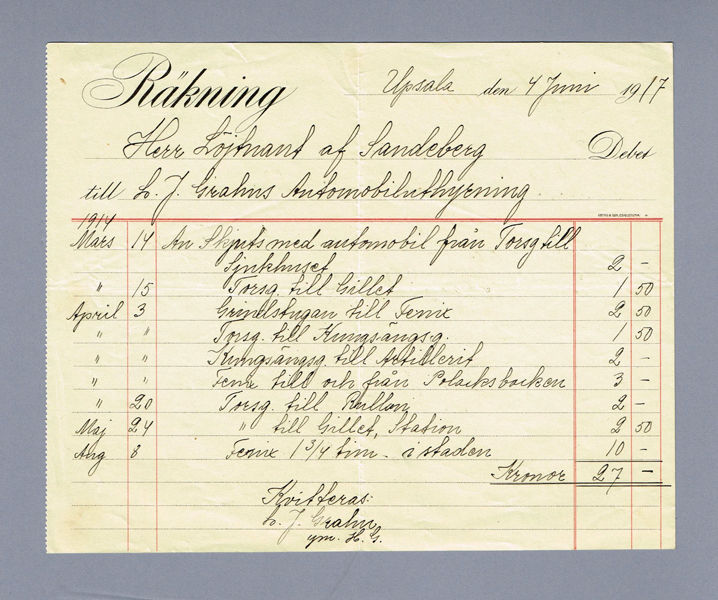 Räkning
Upsala den 4 Juni 1917
Herr Löjtnant af Sandeberg Debet
till L. J. Grahns Automobiluthyrning
1914
Mars 14 An Skjuts med automobil från Torsg till
Sjukhuset 2 -
" 15 Torsg. till Gillet 1 50
April 3 Grindstugan till Fenix 2 50
" " Torsg. till Kungsängsg. 1 50
" " Kungsängsg. till Artillerit 2 -
" " Fenix till och från Polacksbacken 3 -
" 20 Torsg. till Rullan 2 -
Maj 24 " till Gillet, Station 2 50
Aug 8 Fenix 1 3/4 tim. i staden 10 -
Kronor 27 -
Kvitteras:
L. J. Grahn
gm. H. G.